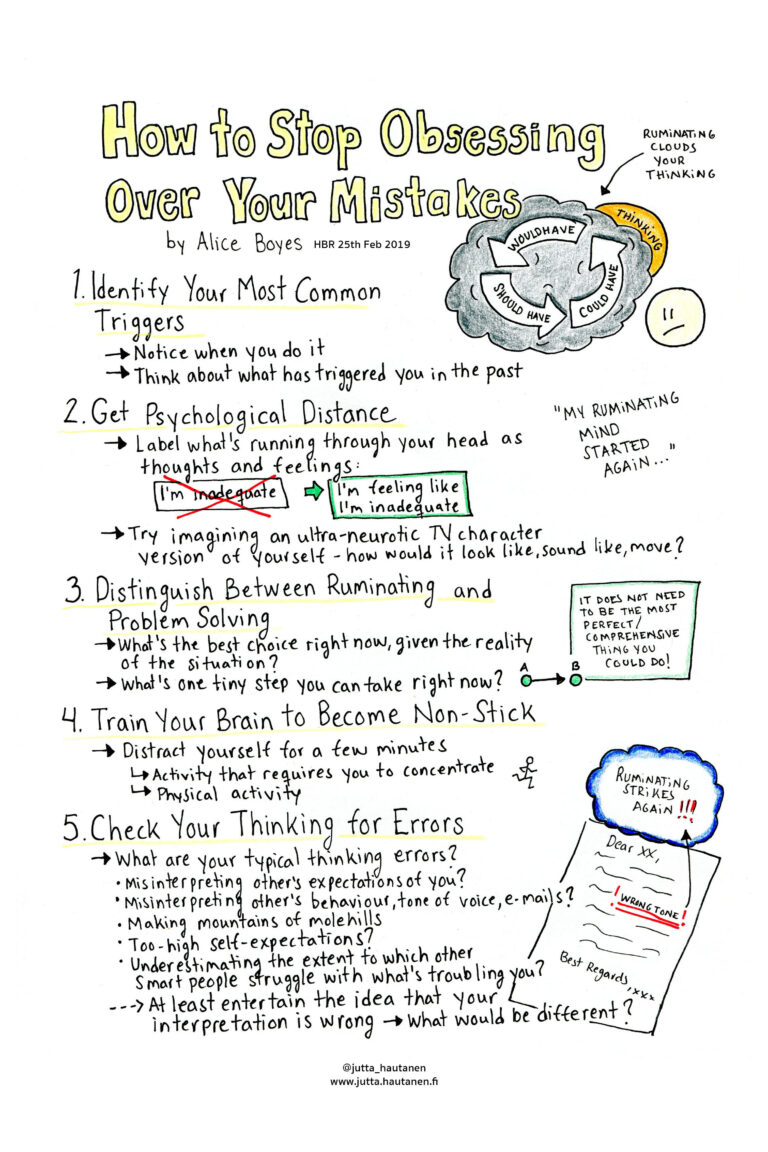 How to Stop Obsessing
Over Your Mistakes
by Alice Boyes HBR 25th Feb 2019
RUMINATING
CLOUDS
YOUR
THINKING
THINKING
WOULD HAVE
COULD HAVE
SHOULD HAVE
1. Identify Your Most Common
Triggers
→ Notice when you do it
→ Think about what has triggered you in the past
2. Get Psychological Distance
→ Label what's running through your head as
thoughts and feelings:
I'm inadequate → I'm feeling like
I'm inadequate
"MY RUMINATING
MIND
STARTED
AGAIN..."
→ Try imagining an ultra-neurotic TV character
version of yourself - how would it look like, sound like, move?
3. Distinguish Between Ruminating and
Problem Solving
→ What's the best choice right now, given the reality
of the situation?
→ What's one tiny step you can take right now?
A → B
IT DOES NOT NEED
TO BE THE MOST
PERFECT/
COMPREHENSIVE
THING YOU
COULD DO!
4. Train Your Brain to Become Non-Stick
→ Distract yourself for a few minutes
↳ Activity that requires you to concentrate
↳ Physical activity
5. Check Your Thinking for Errors
→ What are your typical thinking errors?
• Misinterpreting other's expectations of you?
• Misinterpreting other's behaviour, tone of voice, e-mails?
• Making mountains of molehills
• Too-high self-expectations?
• Underestimating the extent to which other
smart people struggle with what's troubling you?
---> At least entertain the idea that your
interpretation is wrong → What would be different?
RUMINATING
STRIKES
AGAIN !!!
Dear XX,
! WRONG TONE !
Best Regards,
xxx
@jutta_hautanen
www.jutta.hautanen.fi